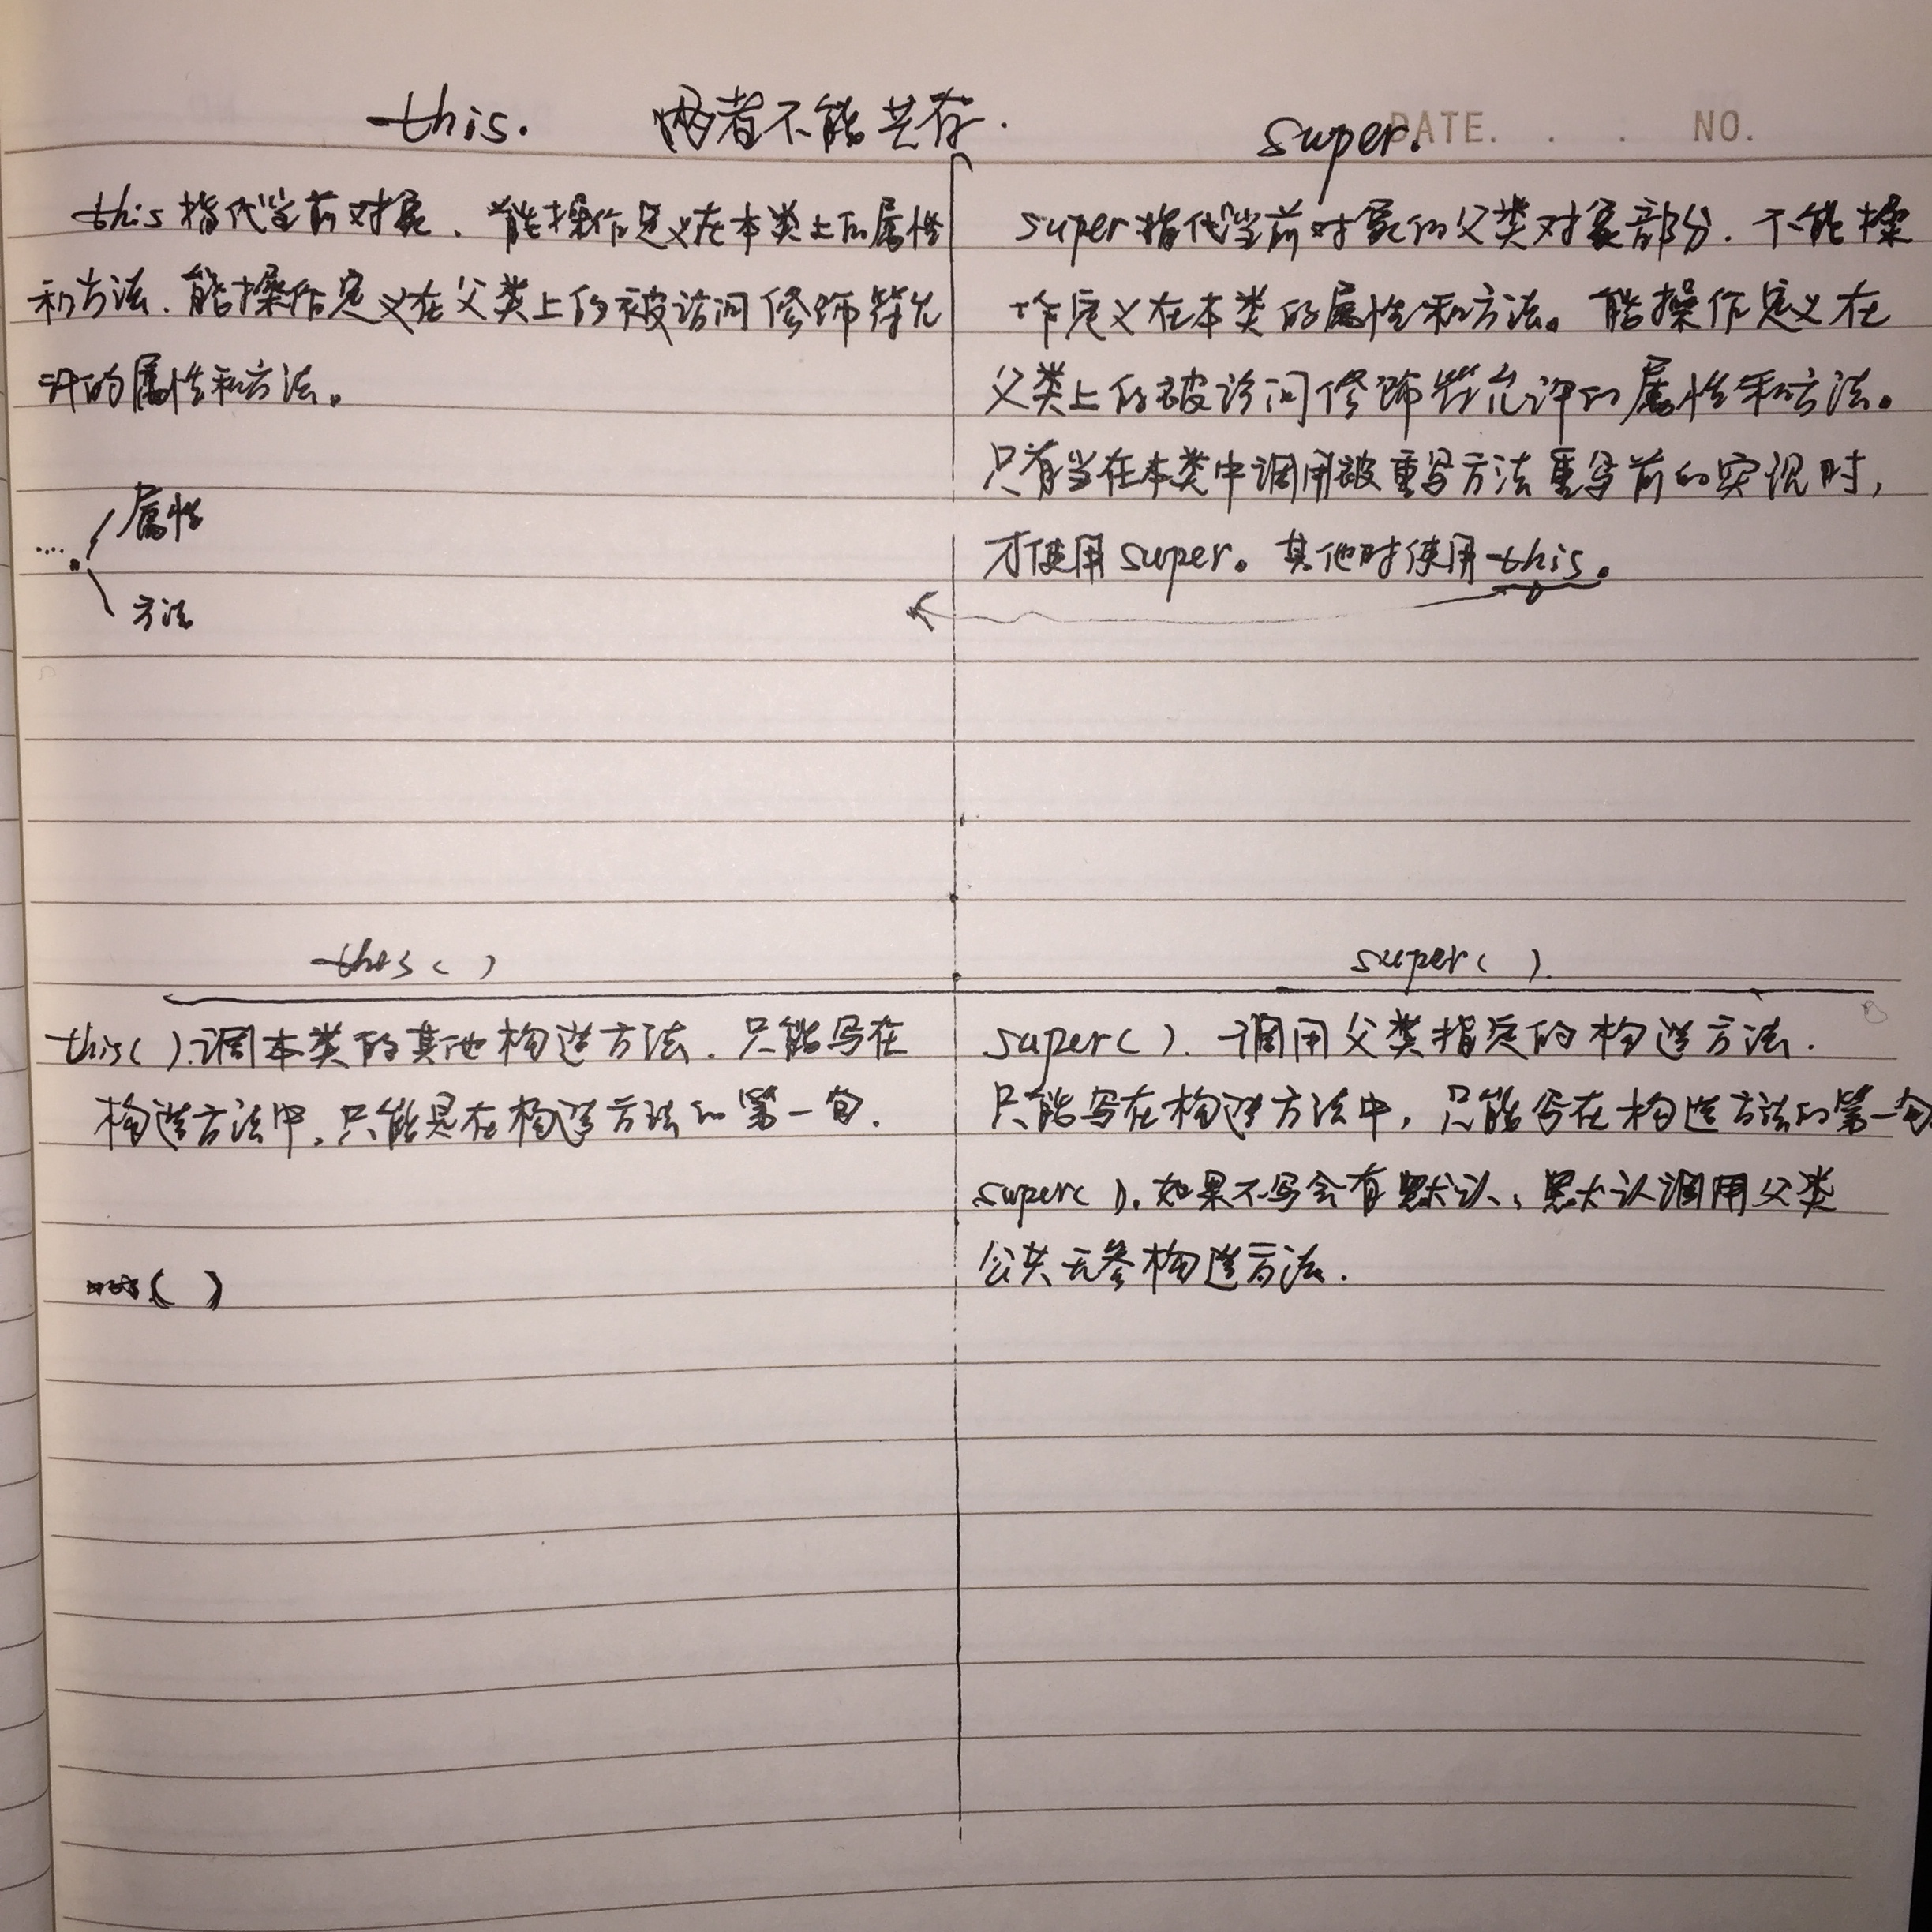 DATE. . . NO.
this. 两者不能共存. super.
this 指代当前对象. 能操作定义在本类上的属性
和方法. 能操作定义在父类上的被访问修饰符允
许的属性和方法。
属性
....
方法
super 指代当前对象的父类对象部分. 不能操
作定义在本类的属性和方法。能操作定义在
父类上的被访问修饰符允许的属性和方法。
只有当在本类中调用被重写方法重写前的实现时,
才使用super。其他时使用this。
this( )
this( ).调本类的其他构造方法. 只能写在
构造方法中, 只能是在构造方法的第一句.
( )
super( ).
super( ). 调用父类指定的构造方法.
只能写在构造方法中, 只能写在构造方法的第一句.
super( ). 如果不写会有默认、默认调用父类
公共无参构造方法.